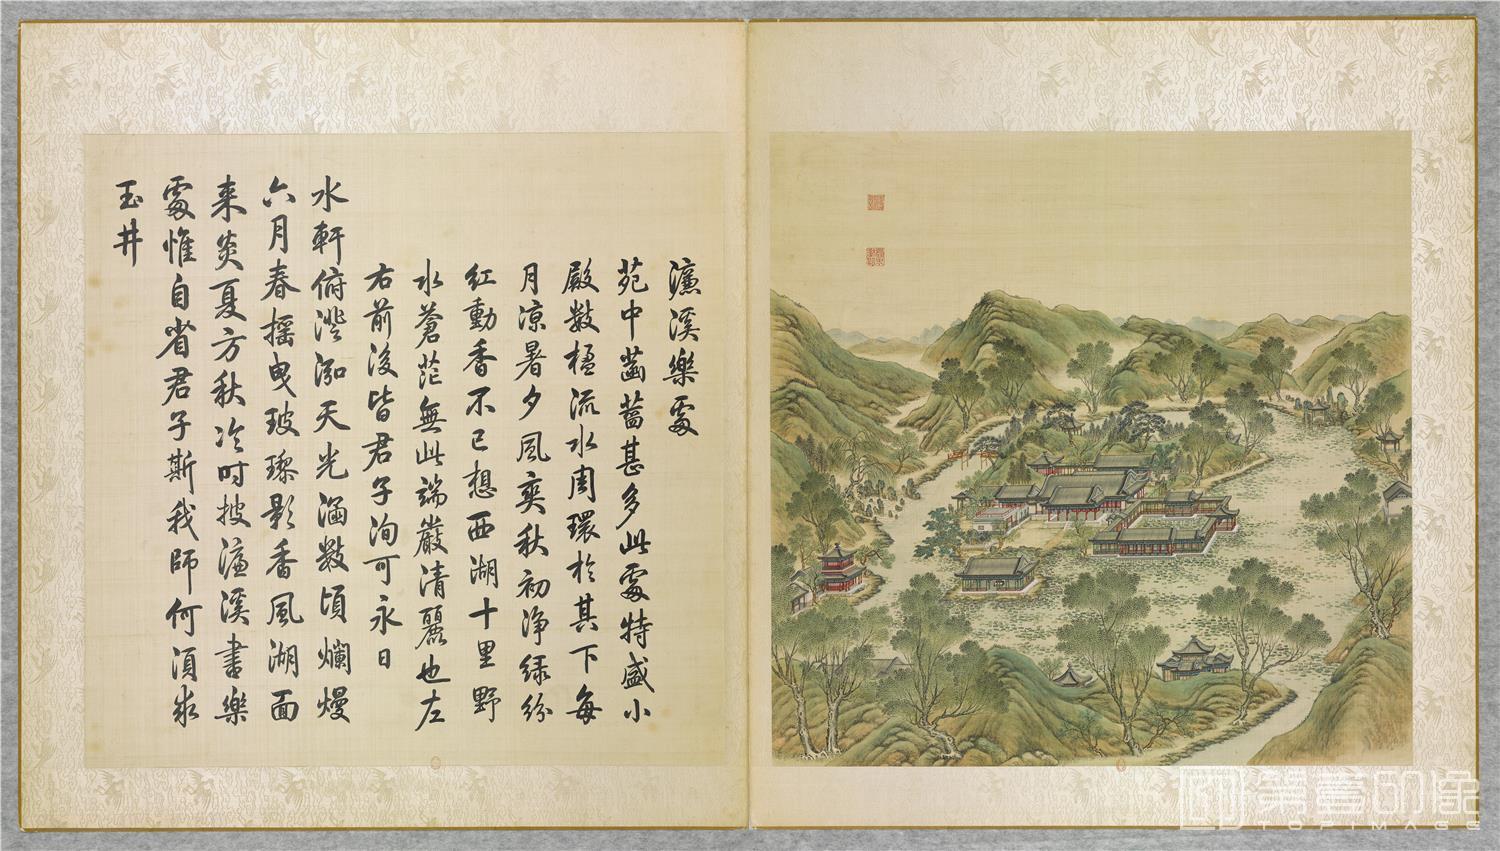 濂溪樂處
苑中菡萏甚多此處特盛小
殿數楹流水周環於其下每
月凉暑夕風爽秋初淨緑紛
紅動香不已想西湖十里野
水蒼茫無此端嚴清麗也左
右前後皆君子洵可永日
水軒俯澄泓天光涵數頃爛熳
六月春摇曳玻瓈影香風湖面
来炎夏方秋冷时披濂溪書樂
處惟自省君子斯我師何須求
玉井
第壹印象
TOPIMAGE